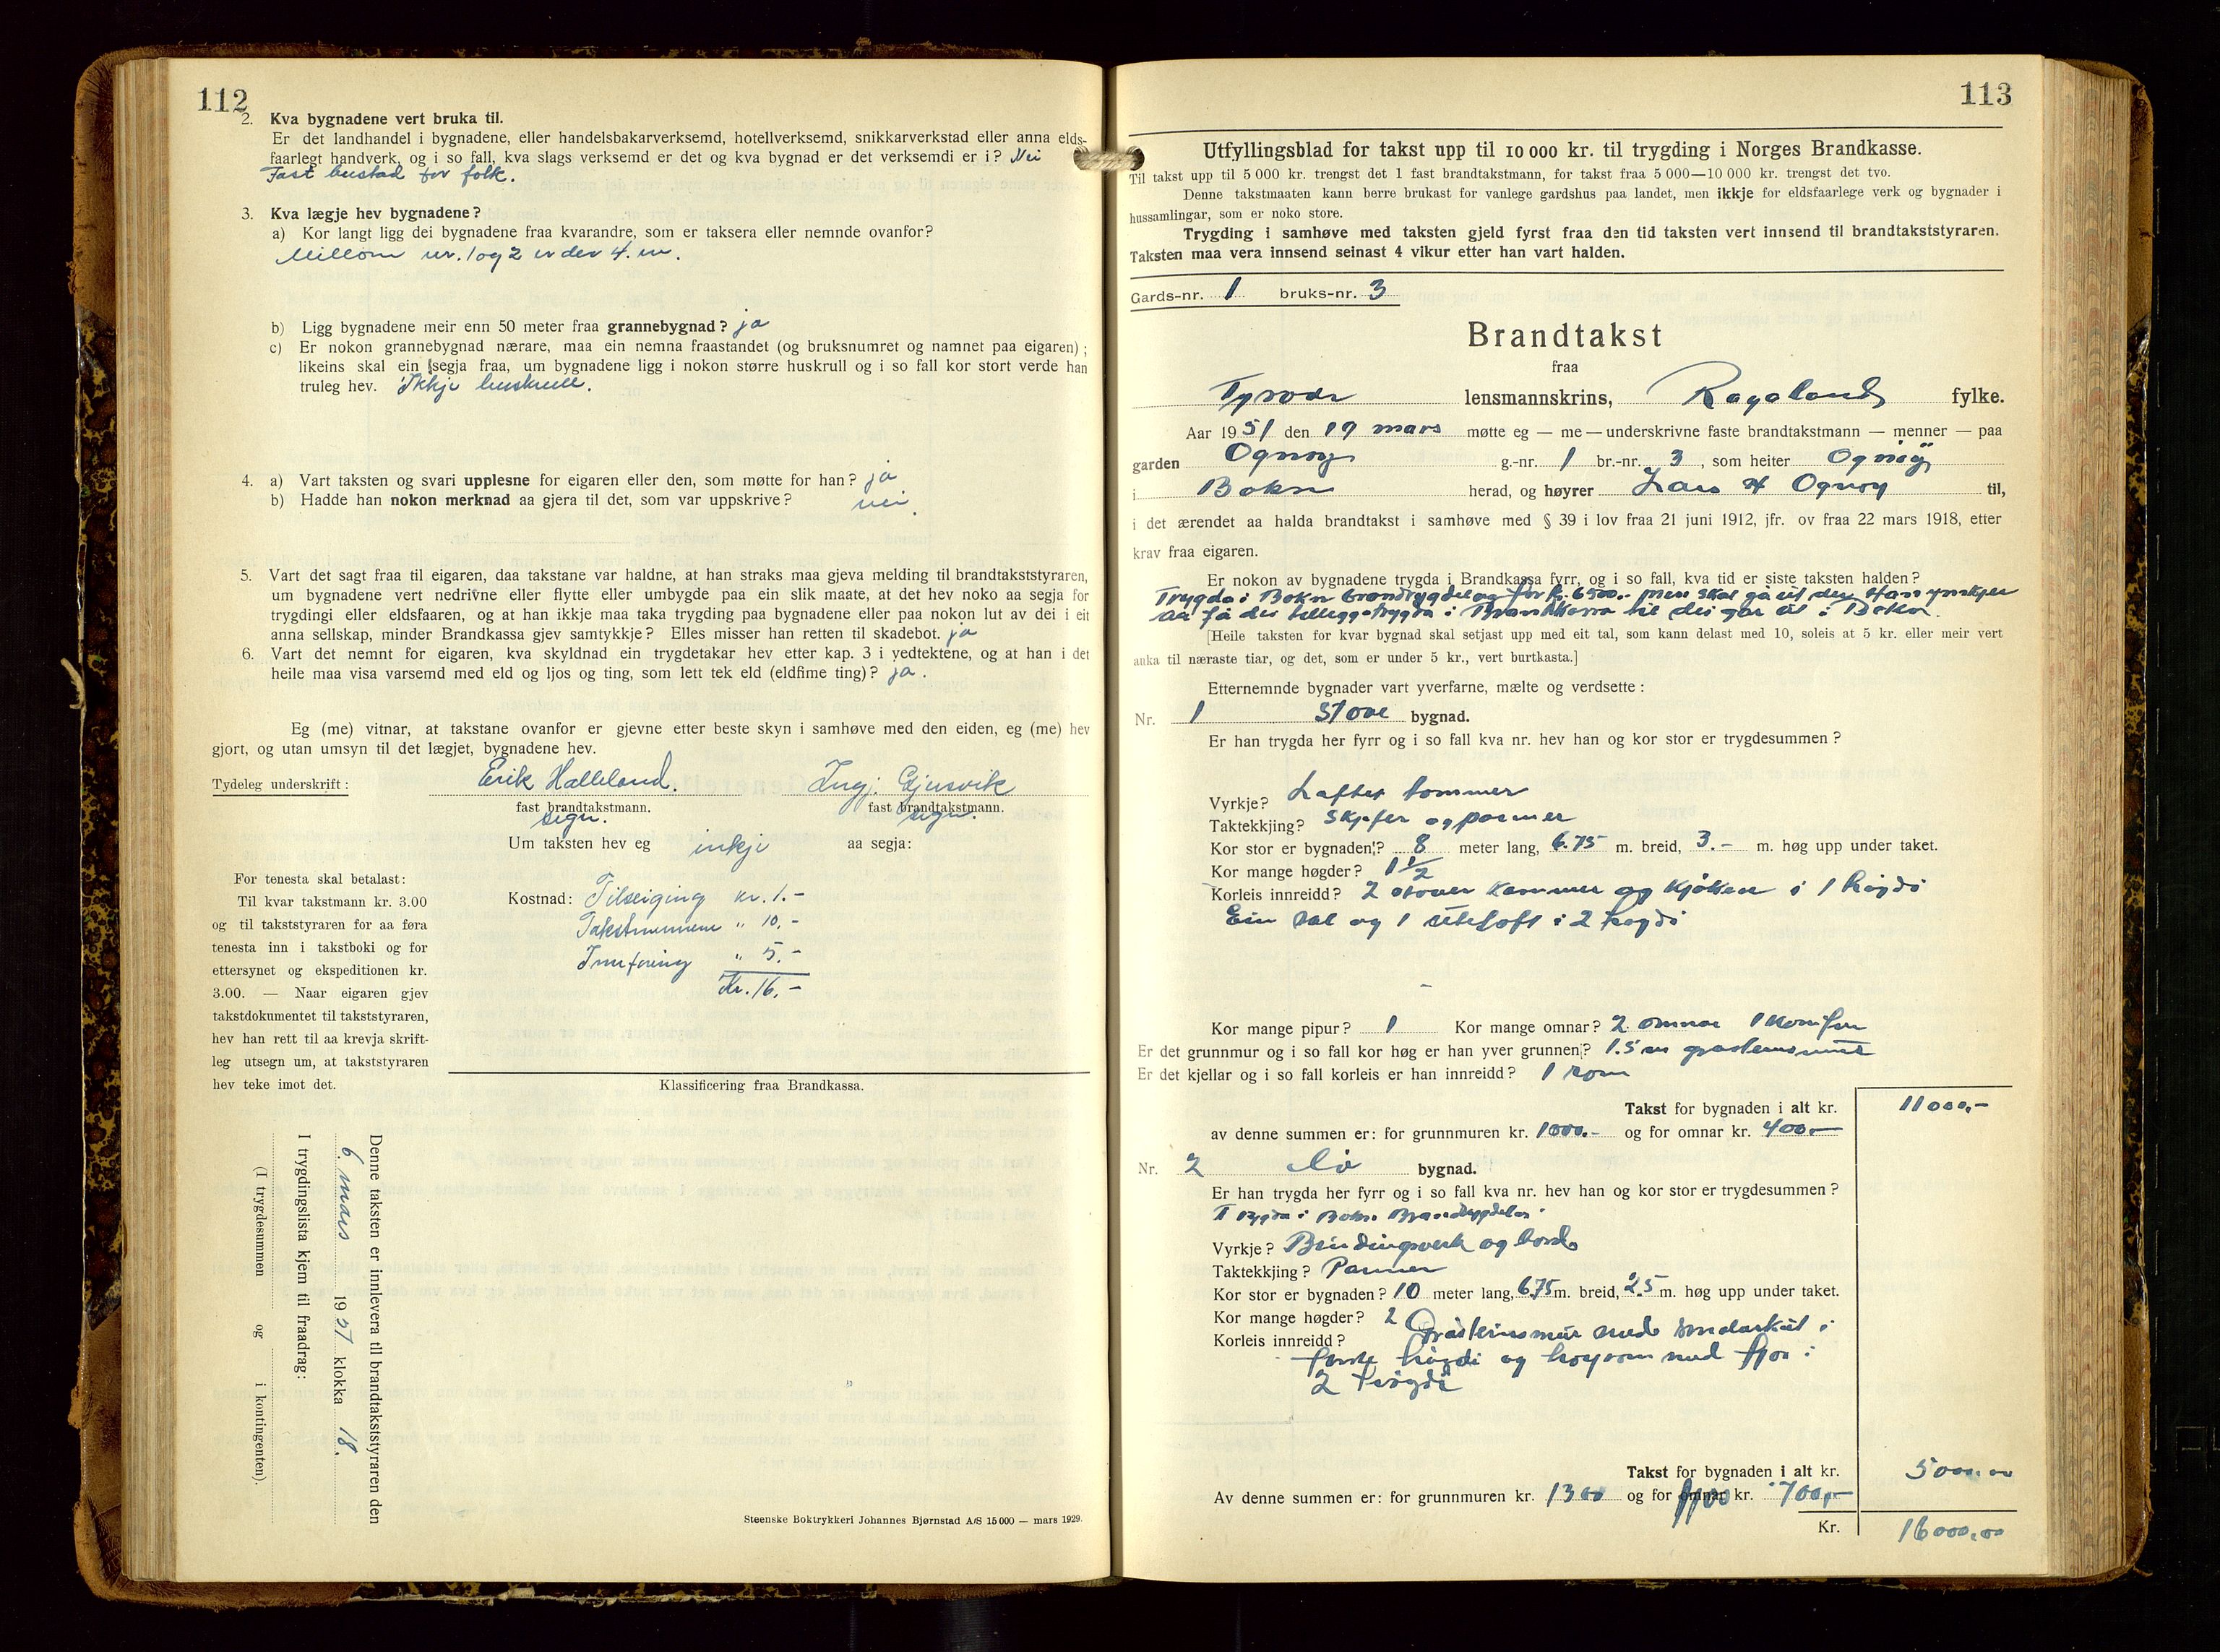 112
2. Kva bygnadene vert bruka til.
Er det landhandel i bygnadene, eller handelsbakarverksemd, hotellverksemd, snikkarverkstad eller anna elds-
faarlegt handverk, og i so fall, kva slags verksemd er det og kva bygnad er det verksemdi er i? Nei
Fast bustad for folk.
3. Kva lægje hev bygnadene?
a) Kor langt ligg dei bygnadene fraa kvarandre, som er taksera eller nemnde ovanfor?
Millom nr. 1 og 2 er der 4. m.
b) Ligg bygnadene meir enn 50 meter fraa grannebygnad? ja
c) Er nokon grannebygnad nærare, maa ein nemna fraastandet (og bruksnumret og namnet paa eigaren);
likeins skal ein segja fraa, um bygnadene ligg i nokon større huskrull og i so fall kor stort verde han
truleg hev. Ikkje huskrull.
4. a) Vart taksten og svari upplesne for eigaren eller den, som møtte for han? ja
b) Hadde han nokon merknad aa gjera til det, som var uppskrive? nei.
5. Vart det sagt fraa til eigaren, daa takstane var haldne, at han straks maa gjeva melding til brandtakststyraren,
um bygnadene vert nedrivne eller flytte eller umbygde paa ein slik maate, at det hev noko aa segja for
trygdingi eller eldsfaaren, og at han ikkje maa taka trygding paa bygnadene eller paa nokon lut av dei i eit
anna sellskap, minder Brandkassa gjev samtykkje? Elles misser han retten til skadebot. ja
6. Vart det nemnt for eigaren, kva skyldnad ein trygdetakar hev etter kap. 3 i vedtektene, og at han i det
heile maa visa varsemd med eld og ljos og ting, som lett tek eld (eldfime ting)? ja.
Eg (me) vitnar, at takstane ovanfor er gjevne etter beste skyn i samhøve med den eiden, eg (me) hev
gjort, og utan umsyn til det lægjet, bygnadene hev.
Tydeleg underskrift: Erik Halleland. Ingj. Gjusvik
fast brandtakstmann. fast brandtakstmann.
sign. sign.
Um taksten hev eg inkje aa segja:
Kostnad: Tilseiging kr. 1.-
Takstmennene " 10.-
Innføring " 5.-
Kr. 16.-
For tenesta skal betalast:
Til kvar takstmann kr. 3.00
og til takststyraren for aa føra
tenesta inn i takstboki og for
ettersynet og ekspeditionen kr.
3.00. — Naar eigaren gjev
takstdokumentet til takststyraren,
hev han rett til aa krevja skrift-
leg utsegn um, at takststyraren
hev teke imot det.
Klassificering fraa Brandkassa.
Denne taksten er innlevera til brandtakststyraren den
6. mars 1951 klokka 18.
I trygdingslista kjem til fraadrag:
(I trygdesummen og i kontingenten).
Steenske Boktrykkeri Johannes Bjørnstad A/S 15 000 — mars 1929.
113
Utfyllingsblad for takst upp til 10 000 kr. til trygding i Norges Brandkasse.
Til takst upp til 5 000 kr. trengst det 1 fast brandtakstmann, for takst fraa 5 000—10 000 kr. trengst det tvo.
Denne takstmaaten kann berre brukast for vanlege gardshus paa landet, men ikkje for eldsfaarlege verk og bygnader i
hussamlingar, som er noko store.
Trygding i samhøve med taksten gjeld fyrst fraa den tid taksten vert innsend til brandtakststyraren.
Taksten maa vera innsend seinast 4 vikur etter han vart halden.
Gards-nr. 1 bruks-nr. 3
Brandtakst
fraa
Tysvær lensmannskrins, Rogaland fylke.
Aar 1951 den 19 mars møtte eg — me — underskrivne faste brandtakstmann — menner — paa
garden Ognøy g.-nr. 1 br.-nr. 3, som heiter Ognøy
i Bokn herad, og høyrer Lars H Ognøy til,
i det ærendet aa halda brandtakst i samhøve med § 39 i lov fraa 21 juni 1912, jfr. ov fraa 22 mars 1918, etter
krav fraa eigaren.
Er nokon av bygnadene trygda i Brandkassa fyrr, og i so fall, kva tid er siste taksten halden?
Trygda i Bokn brandtrygdelag for kr. 6500.- men skal gå ut der, Han ynskjer
aa få dei tilleggstrygda i Brandkassa til dei går ut i Bokn.
[Heile taksten for kvar bygnad skal setjast upp med eit tal, som kann delast med 10, soleis at 5 kr. eller meir vert
auka til næraste tiar, og det, som er under 5 kr., vert burtkasta.]
Etternemnde bygnader vart yverfarne, mælte og verdsette:
Nr. 1 Stove bygnad.
Er han trygda her fyrr og i so fall kva nr. hev han og kor stor er trygdesummen?
Vyrkje? Lafter tømmer
Taktekkjing? Skifer og panner
Kor stor er bygnaden? 8 meter lang, 6.75 m. breid, 3.- m. høg upp under taket.
Kor mange høgder? 1 1/2
Korleis innreidd? 2 stover kammer og kjøken i 1 høgdi
Ein sal og 1 uteloft i 2 høgdi
Kor mange pipur? 1 Kor mange omnar? 2 omnar 1 komfyr
Er det grunnmur og i so fall kor høg er han yver grunnen? 1.5 m gråsteinsmur
Er det kjellar og i so fall korleis er han innreidd? 1 rom
Takst for bygnaden i alt kr. 11000,-
av denne summen er: for grunnmuren kr. 1000.- og for omnar kr. 400.-
Nr. 2 Lø bygnad.
Er han trygda her fyrr og i so fall kva nr. hev han og kor stor er trygdesummen?
Trygda i Bokn Brandtrygdelag.
Vyrkje? Bindingsverk og bord
Taktekkjing? Panner
Kor stor er bygnaden? 10 meter lang, 6.75 m. breid, 2.5 m. høg upp under taket.
Kor mange høgder? 2
Korleis innreidd? Gråsteinsmur med i
fyrste høgdi og høyrom med fjos i
2 høgdi
Takst for bygnaden i alt kr. 5000.00
Av denne summen er: for grunnmuren kr. 1300 og for omnar kr. 700,-
Kr. 16000,00